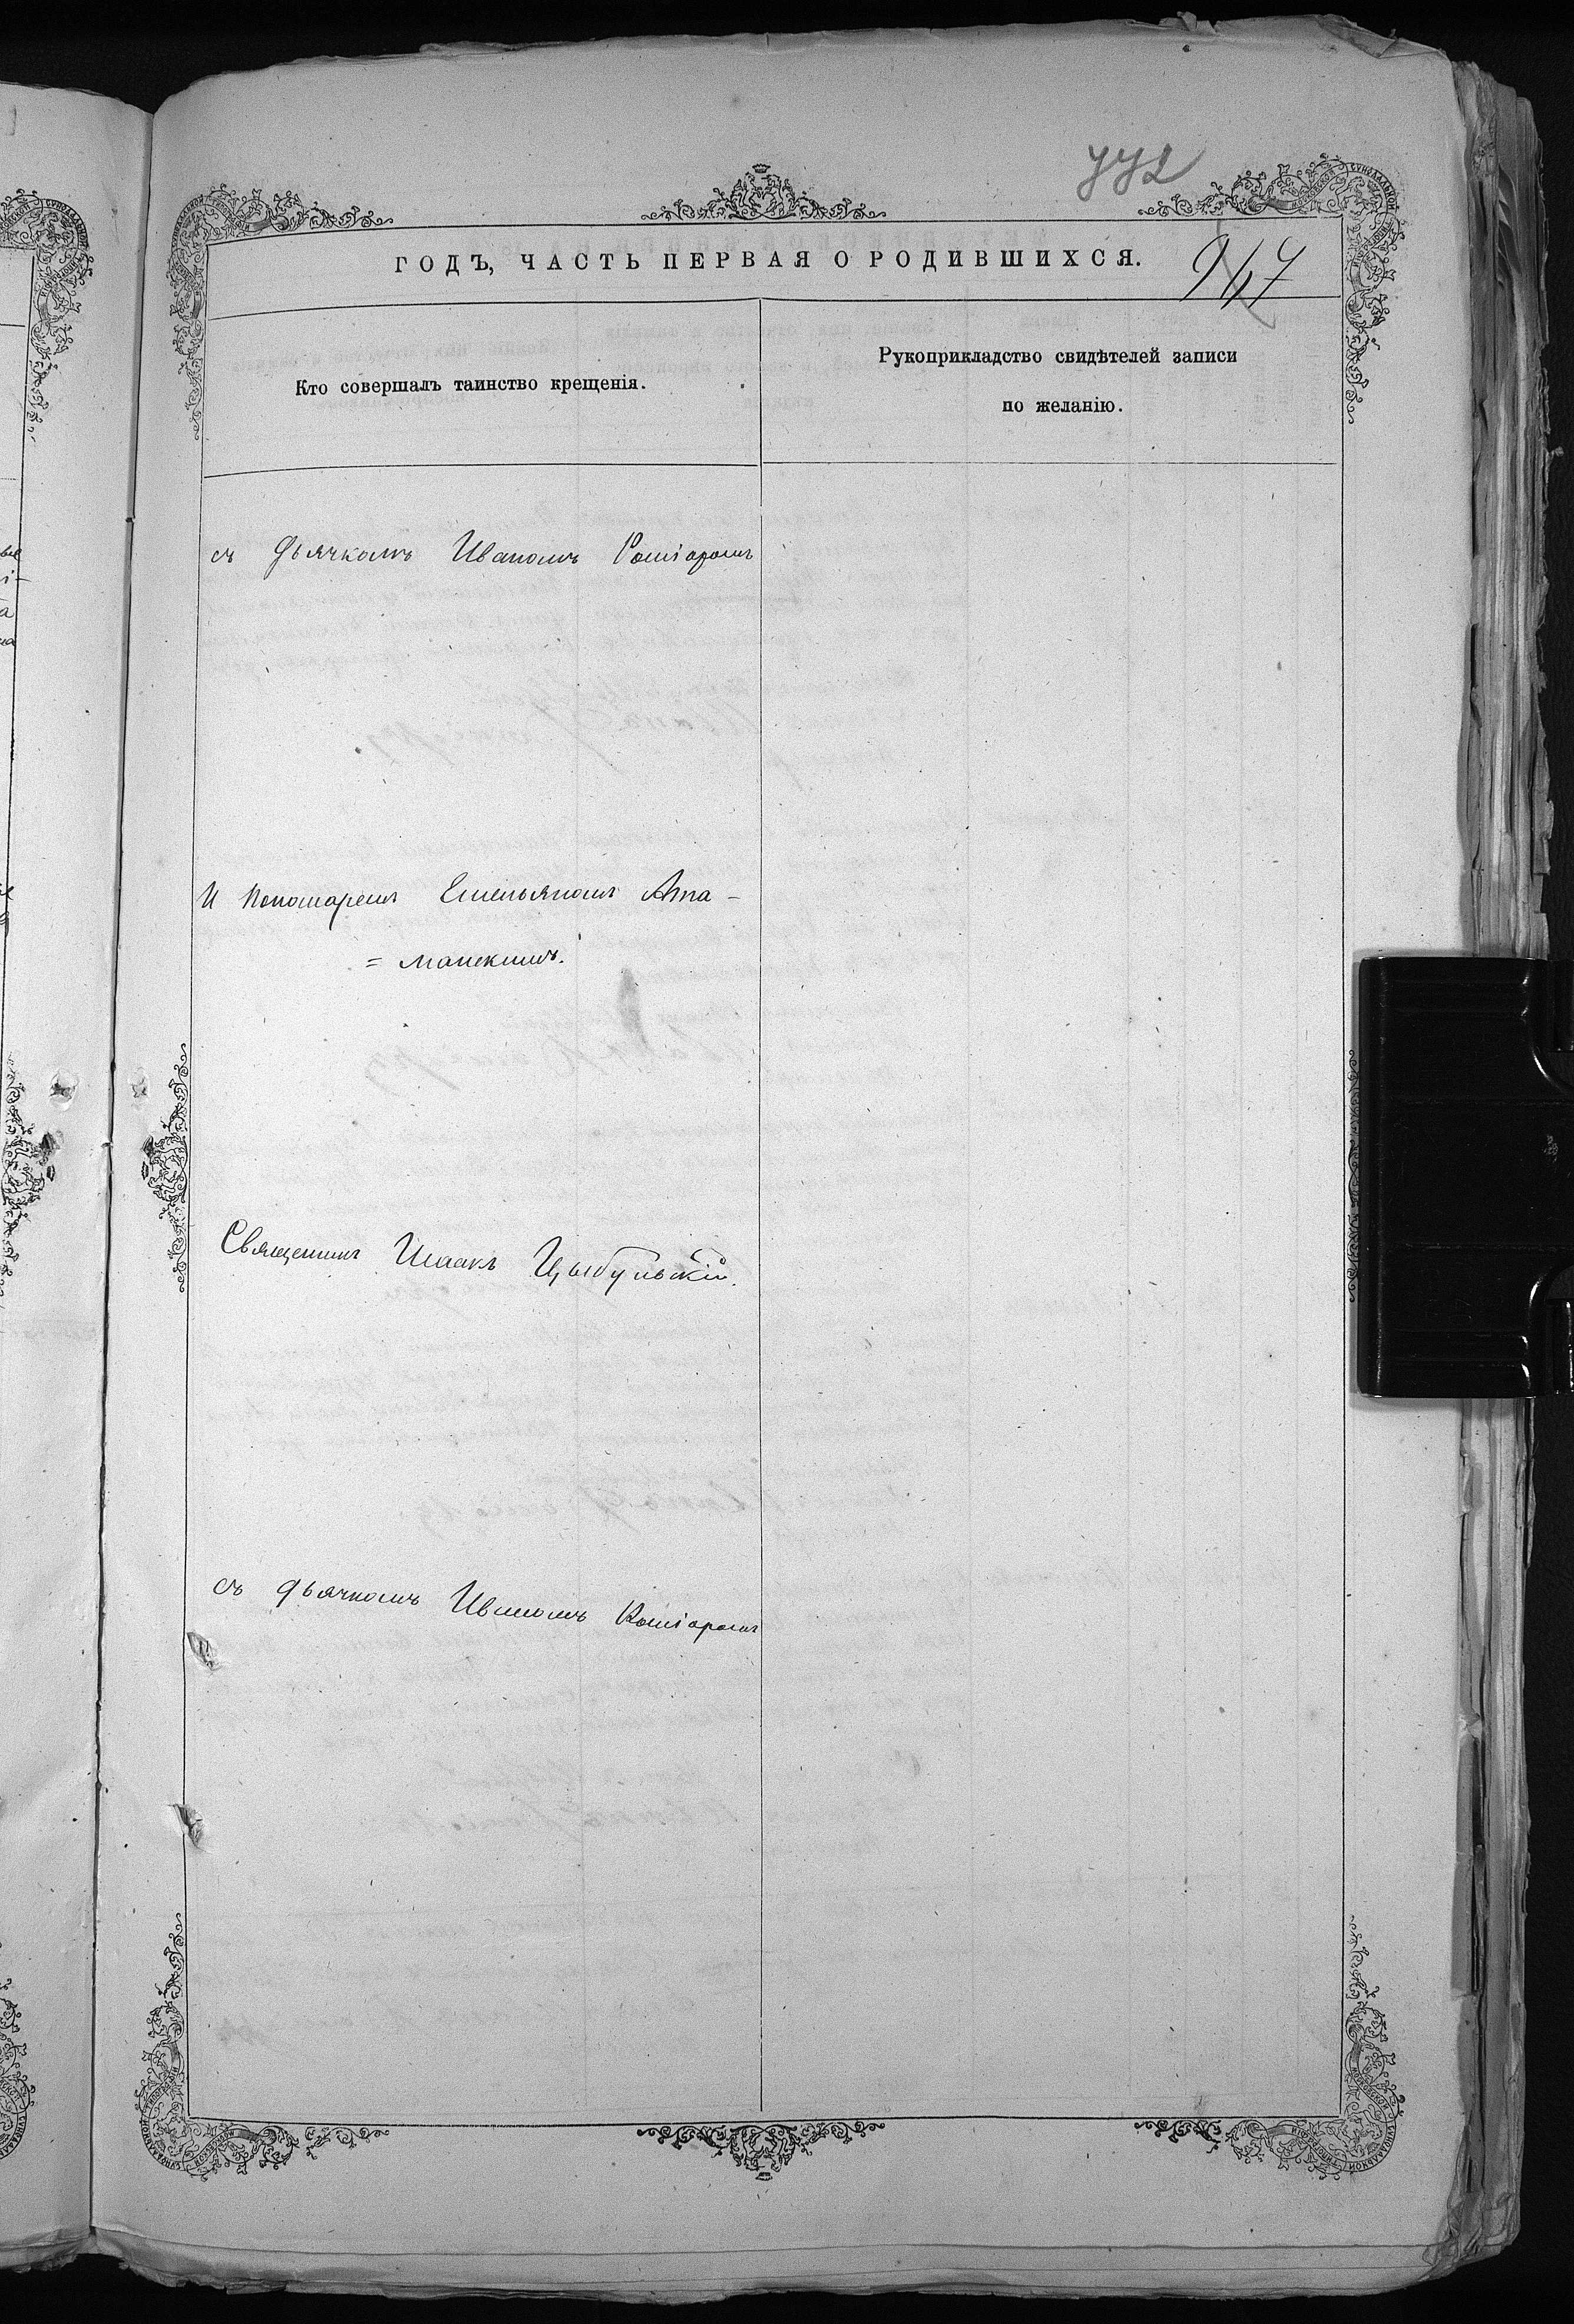 772
ГОДЪ, ЧАСТЬ ПЕРВАЯ О РОДИВШИХСЯ.
947
Кто совершалъ таинство крещенія.
Рукоприкладство свидѣтелей записи
по желанію.
съ дьячкомъ Иваномъ
И Пономаремъ Емельяномъ Ата-
= манскимъ.
Священникъ Исаакъ Цыбульскій.
съ дьячкомъ Иваномъ